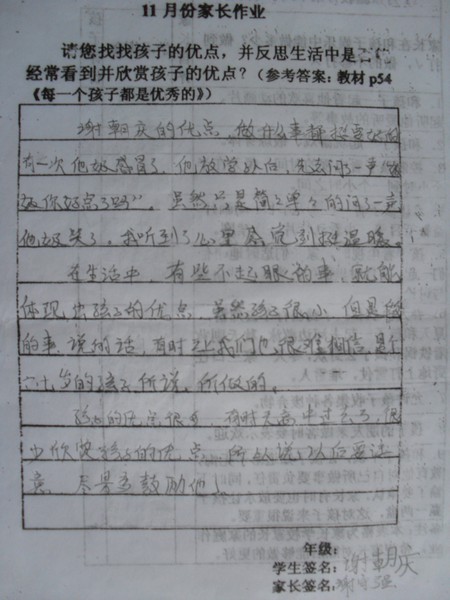 11月份家长作业
请您找找孩子的优点，并反思生活中是否
经常看到并欣赏孩子的优点？（参考答案：教材p54
《每一个孩子都是优秀的》）
谢朝庆的优点，做什么事都挺
有一次他爸感冒了，他放学以后，先问了一声"爸
爸你好点了吗"。虽然只是简简单单的问了一声
他爸笑了，我听到了心里感觉到挺温暖。
在生活中，有些不起眼的事，就能
体现出孩子的优点，虽然孩子很小，但是做
的事，说的话，有时让我们也很难相信是个
六七岁的孩子所说，所做的。
孩子的优点很多，有时大病中过去了，很
少欣赏孩子的优点，所以咱们以后要注
意，尽量多鼓励他！
年级：
学生签名：谢朝庆
家长签名：谢